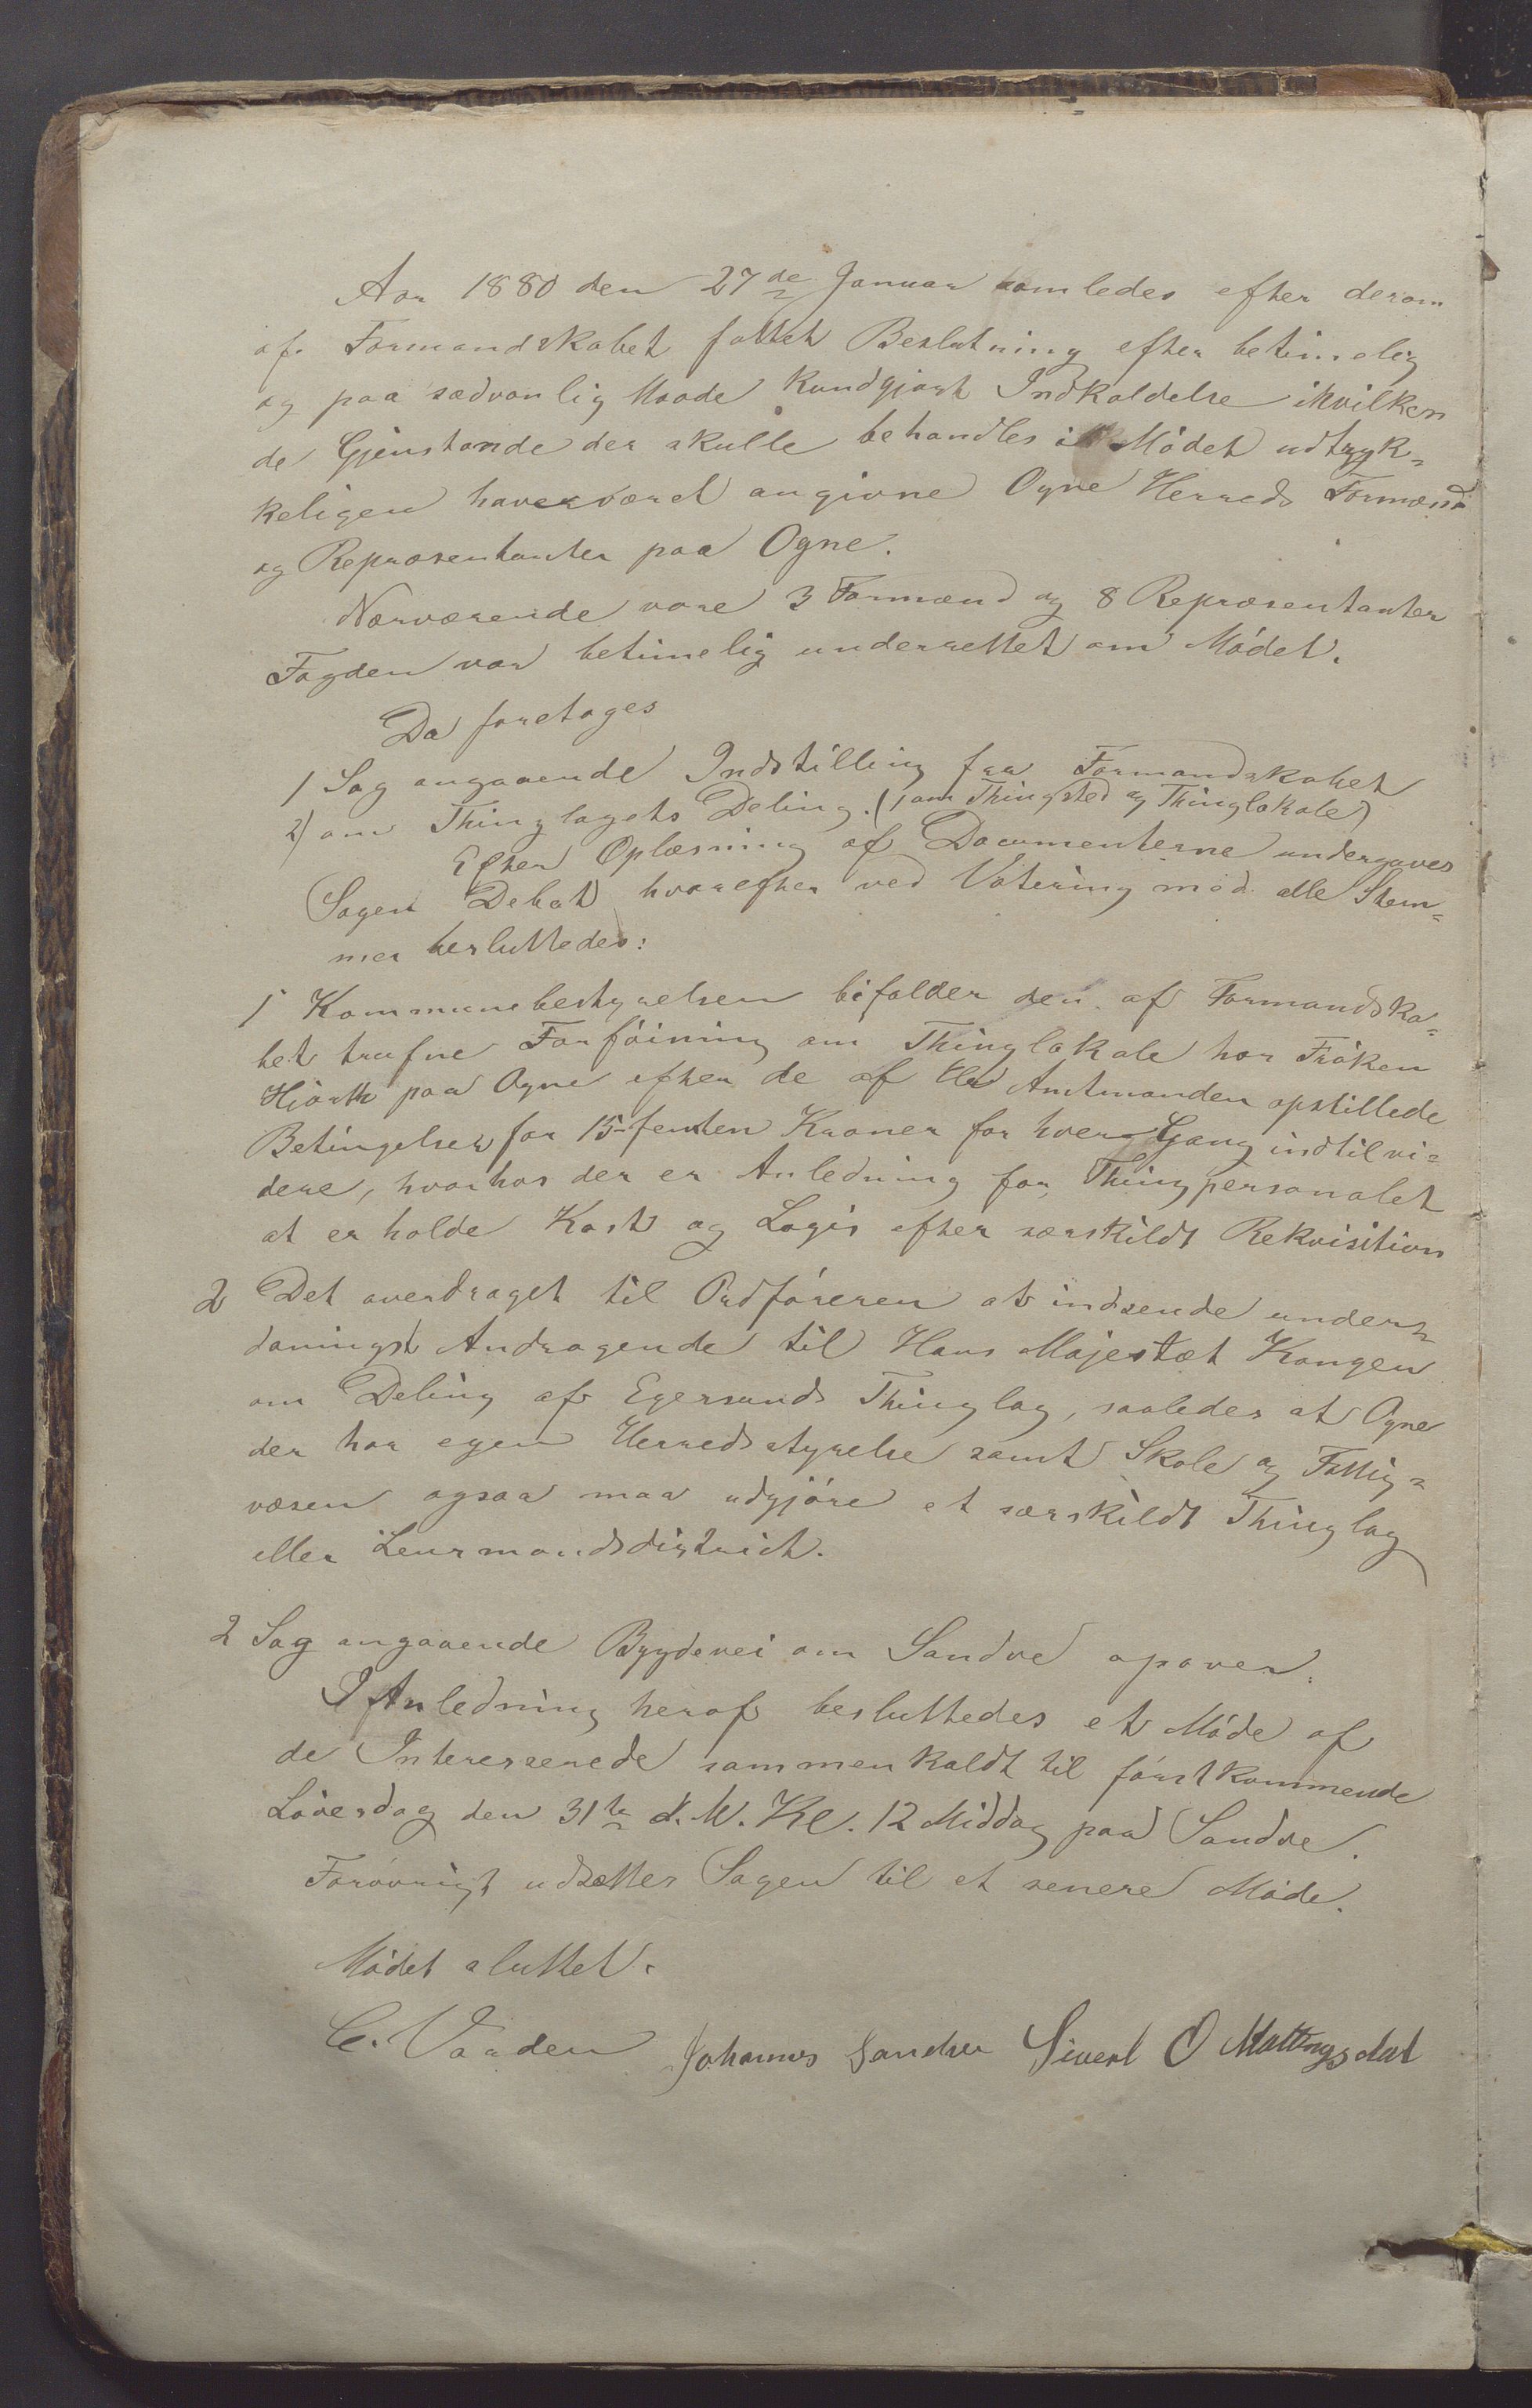 Aar 1880 den 27de Januar samledes efter derom
af Formandskabet fattet Beslutning efter betimelig
og paa sædvanlig Maade kundgjort Indkaldelse ihvilken
de Gjenstande der skulle behandles i Mödet udtryk-
keligen have været angivne Ogne Herreds Formænd
og Repræsentanter paa Ogne.
Nærværende vare 3 Formænd og 8 Repræsentanter
Fogden var betimelig underrettet om Mödet.
Da foretoges
1 Sag angaaende Indstilling fra Formandskabet
2) om Thinglagets Deling. (1 om Thingsted og Thinglokale)
Efter Oplæsning af Documenterne undergaves
Sagen Debat hvorefter ved Votering mod alle Stem-
mer besluttedes:
1 Kommunebestyrelsen bifalder den af Formandska-
bet trufne Forföining om Thinglokale hos Fröken
Hjorth paa Ogne efter de af Hr Amtmanden opstillede
Betingelser for 15-femten Kroner for hver Gang indtil vi-
dere, hvorhos der er Anledning for Thingpersonalet
at erholde Kost og Logis efter særskildt Rekvisition
2 Det overdraget til Ordföreren at indsende under-
danigst Andragende til Hans Majestæt Kongen
om Deling af Egersunds Thinglag, saaledes at Ogne
der har egen Herredsstyrelse samt Skole og Fattig-
væsen ogsaa maa udgjöre et særskildt Thinglag
eller Lensmandsdistrict.
2 Sag angaaende Bygdevei om Sandve opover.
I Anledning heraf besluttedes et Möde af
de Interesserede sammenkaldt til förstkommende
Löverdag den 31te d. M. Kl. 12 Middag paa Sandve.
Forövrigt udsættes Sagen til et senere Möde.
Mödet sluttet.
C. Vaaden Johannes Sandve Sivert O Mattingsdal